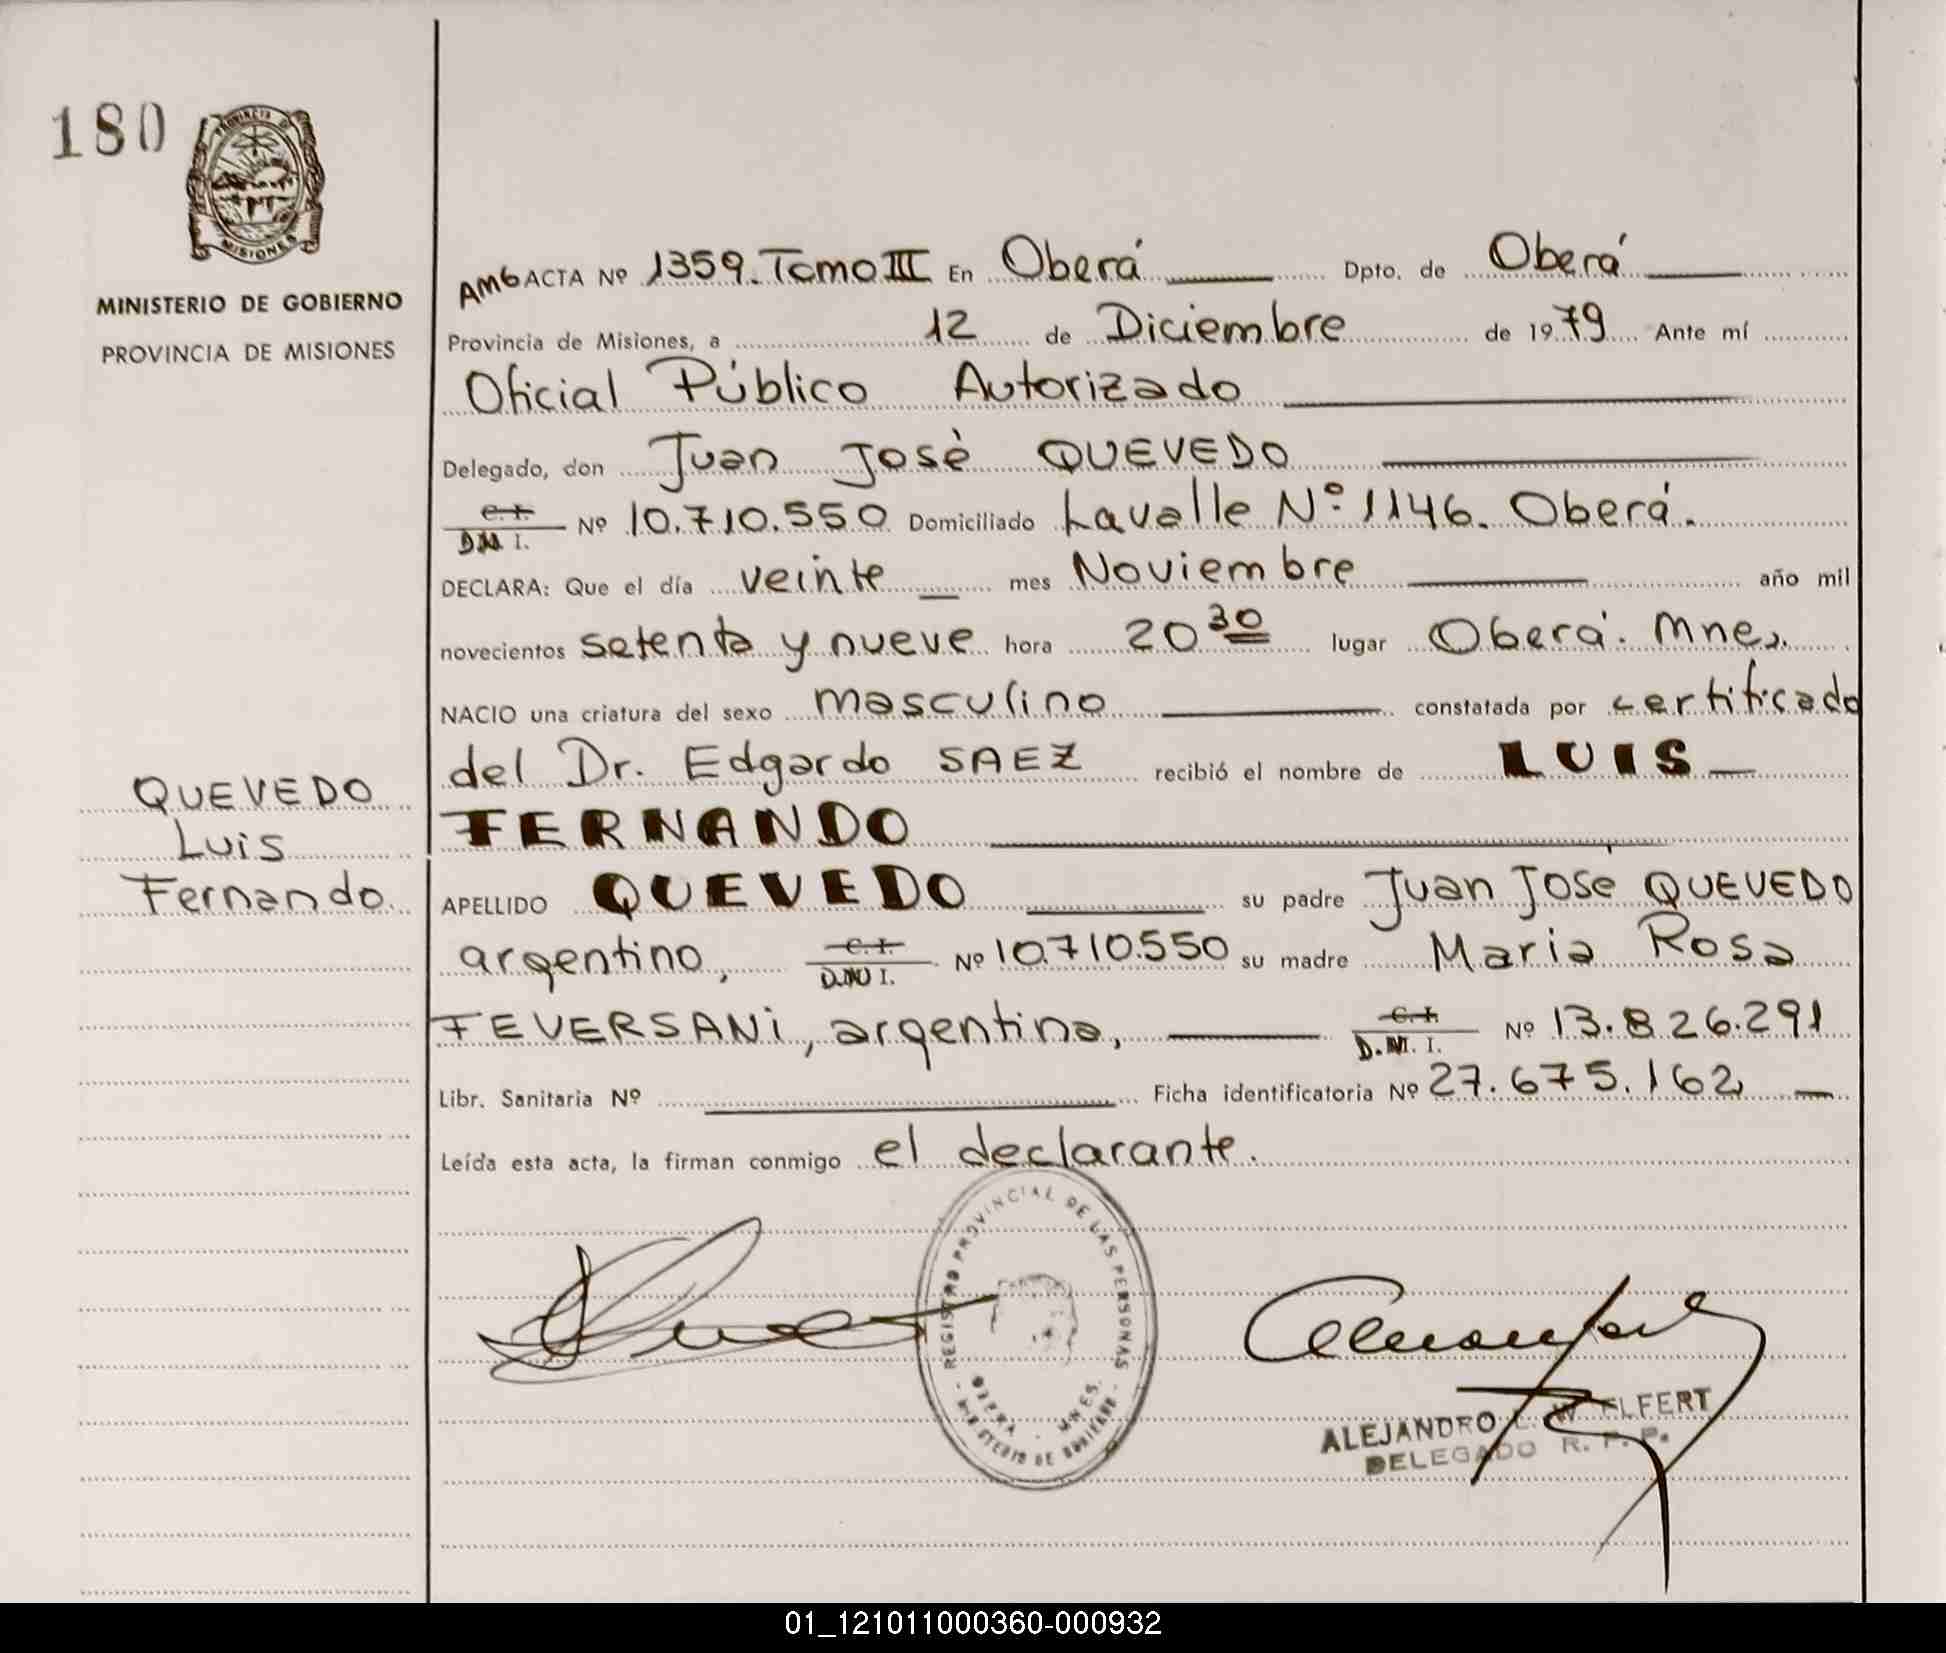 180
PROVINCIA DE
MISIONES
MINISTERIO DE GOBIERNO
PROVINCIA DE MISIONES
AMG ACTA Nº 1359. Tomo III En Oberá Dpto. de Oberá
Provincia de Misiones, a 12 de Diciembre de 1979 Ante mí
Oficial Público Autorizado
Delegado, don Juan José QUEVEDO
C. I.
D.N I. Nº 10.710.550 Domiciliado Lavalle Nº 1146. Oberá.
DECLARA: Que el día veinte mes Noviembre año mil
novecientos setenta y nueve hora 20 30 lugar Oberá. Mnes.
NACIO una criatura del sexo masculino constatada por certificado
del Dr. Edgardo SAEZ recibió el nombre de LUIS
FERNANDO
QUEVEDO
Luis
Fernando.
APELLIDO QUEVEDO su padre Juan José QUEVEDO
argentino, C. I.
D.N I. Nº 10.710.550 su madre Maria Rosa
FEVERSANI, argentina, C. I.
D.N. I. Nº 13.826.291
Libr. Sanitaria Nº Ficha identificatoria Nº 27.675.162
Leída esta acta, la firman conmigo el declarante.
REGISTRO PROVINCIAL DE LAS PERSONAS
OBERA - MNES.
MINISTERIO DE GOBIERNO
ALEJANDRO
DELEGADO R. P. P.
01_121011000360-000932